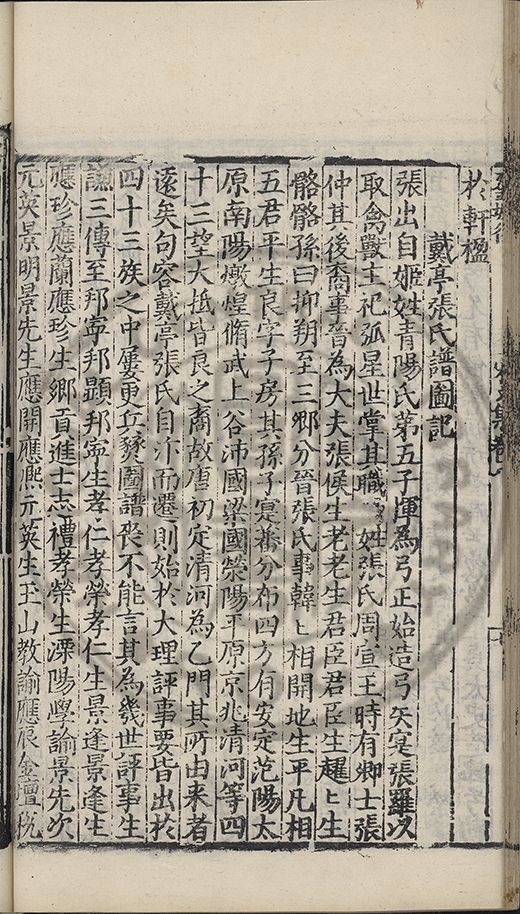 於軒楹
戴亭張氏譜圖記
張出自姬姓青陽氏第五子運為弓正始造弓矢寔張羅以
取禽獸主祀弧星世掌其職 姓張氏周宣王時有卿士張
仲其後裔事晉為大夫張侯生老老生君臣君臣生趯〻生
骼骼孫曰抑朔至三卿分晉張氏事韓〻相開地生平凡相
五君平生良字子房其孫子寔蕃分布四方有安定范陽太
原南陽燉煌脩武上谷沛國梁國滎陽平原京兆清河等四
十三望大抵皆良之裔故唐初定清河為乙門其所由来者
遠矣句容戴亭張氏自亦而遷則始於大理評事要皆出於
四十三族之中屢更兵燹圖譜喪不能言其為幾世評事生
讌三傳至邦寧邦顯邦寧生孝仁孝榮孝仁生景逢景逢生
應珍應蘭應珍生鄉貢進士志禮孝榮生溧陽學諭景先次
元英景明景先生應開應熈元英生玉山教諭應辰金壇稅